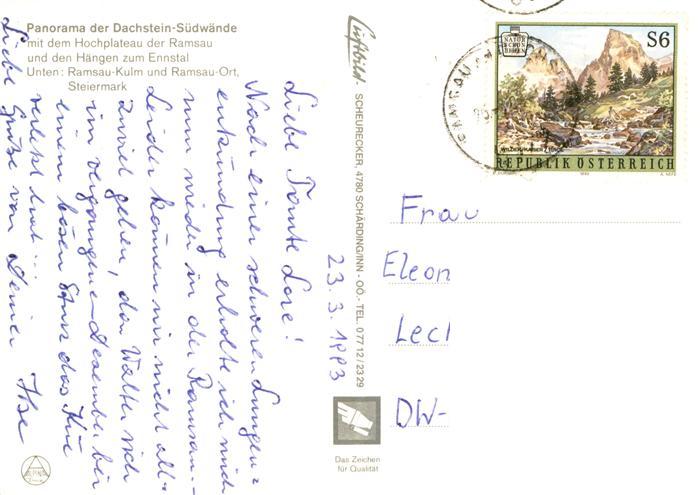 Panorama der Dachstein-Südwände
mit dem Hochplateau der Ramsau
und den Hängen zum Ennstal
Unten: Ramsau-Kulm und Ramsau-Ort,
Steiermark
Liebe Tante Lore!
Nach einer schweren Lungen=
entzündung erholte ich mich
nun wieder in der Ramsau...
Leider können wir nicht all-
zuviel gehen, da Walter sich
im vergangenen Dezember bei
einem bösen Sturz das Knie
verletzt hat...
Liebe Grüße von Deiner Ilse
23. 3. 1993
Luftbild SCHEURECKER, 4780 SCHÄRDING/INN - OÖ. - TEL. 0 77 12 / 23 29
NATUR
SCHÖN
S6
WILDER KAISER / TIROL
REPUBLIK ÖSTERREICH
RAMSAU
Frau
Eleon
Lecl
DW-
ALPINA
Das Zeichen
für Qualität